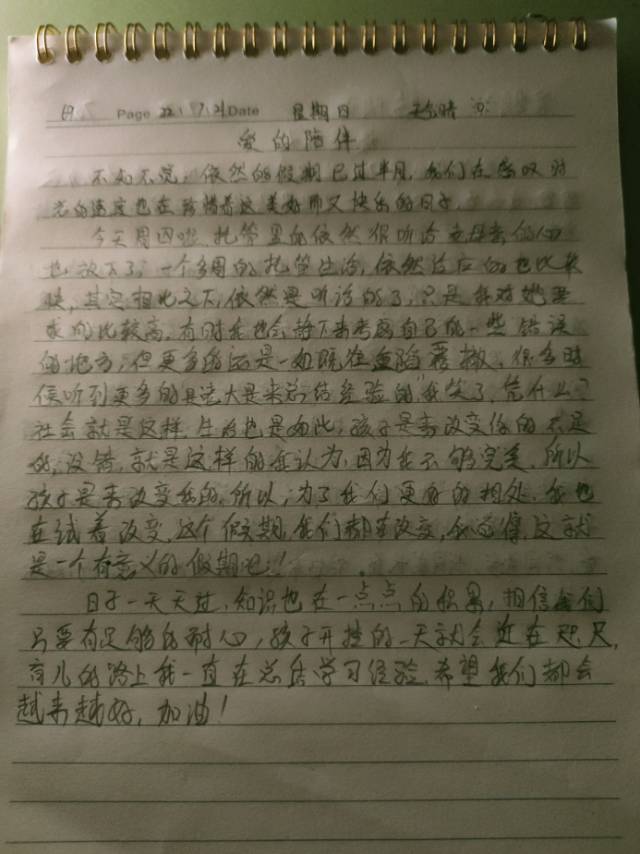 日 Page 22. 7. 21 Date 星期日 晴
爱的陪伴
不知不觉,依然的假期已过半月,我们在感叹时
光的速度也在珍惜着这美好而又快乐的日子.
今天周四啦,托管里的依然很听话
也放下了,一个多周的托管生活,依然适应的也比较
快,其实相比之下,依然是听话的了,只是我对她要
求的比较高,有时我也会静下来考虑自己的一些错误
的地方,但更多的还是一如既往,很多时
候听到更多的是总结经验的 我笑了,凭什么?
社会就是这样,生活也是如此,孩子是来改变你的,不是
的,没错,就是这样的我认为,因为我不够完美,所以
孩子是来改变我的,所以,为了我们更好的相处,我也
在试着改变,这个假期,我们都在改变,我觉得,这就
是一个有意义的假期吧!!
日子一天天过,知识也在一点点的积累,相信我们
只要有足够的耐心,孩子开挂的一天就会近在咫尺,
育儿的路上我一直在总结学习经验,希望我们都会
越来越好,加油!